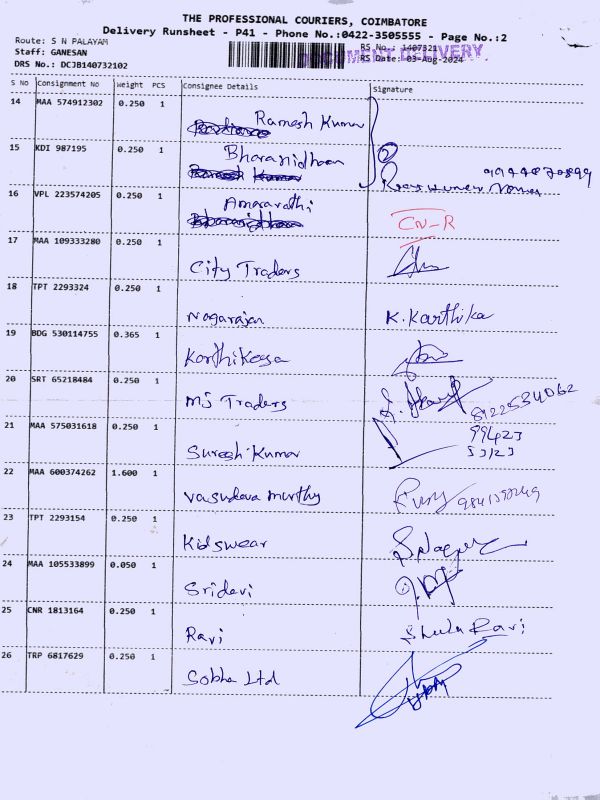 THE PROFESSIONAL COURIERS, COIMBATORE
Delivery Runsheet - P41 - Phone No.:0422-3505555 - Page No.:2
Route: S N PALAYAM
RS No.: 1407321
DOCUMENT DELIVERY
Staff: GANESAN
RS Date: 03-Aug-2024
DRS No.: DCJB140732102
S NO Consignment No Weight PCS Consignee Details Signature
14 MAA 574912302 0.250 1 Ramesh Kumar
15 KDI 987195 0.250 1 Bharanidharan
16 VPL 223574205 0.250 1 Amaravathi CN-R
17 MAA 109333280 0.250 1 City Traders
18 TPT 2293324 0.250 1 Nagarajan K. Karthika
19 BDG 530114755 0.365 1 Karthikeya
20 SRT 65218484 0.250 1 MS Traders 8122534062
21 MAA 575031618 0.250 1 Suresh Kumar 99423
53123
22 MAA 600374262 1.600 1 Vasudeva murthy
23 TPT 2293154 0.250 1 Kidswear
24 MAA 105533899 0.050 1 Sridevi
25 CNR 1813164 0.250 1 Ravi Ravi
26 TRP 6817629 0.250 1 Sobha Ltd